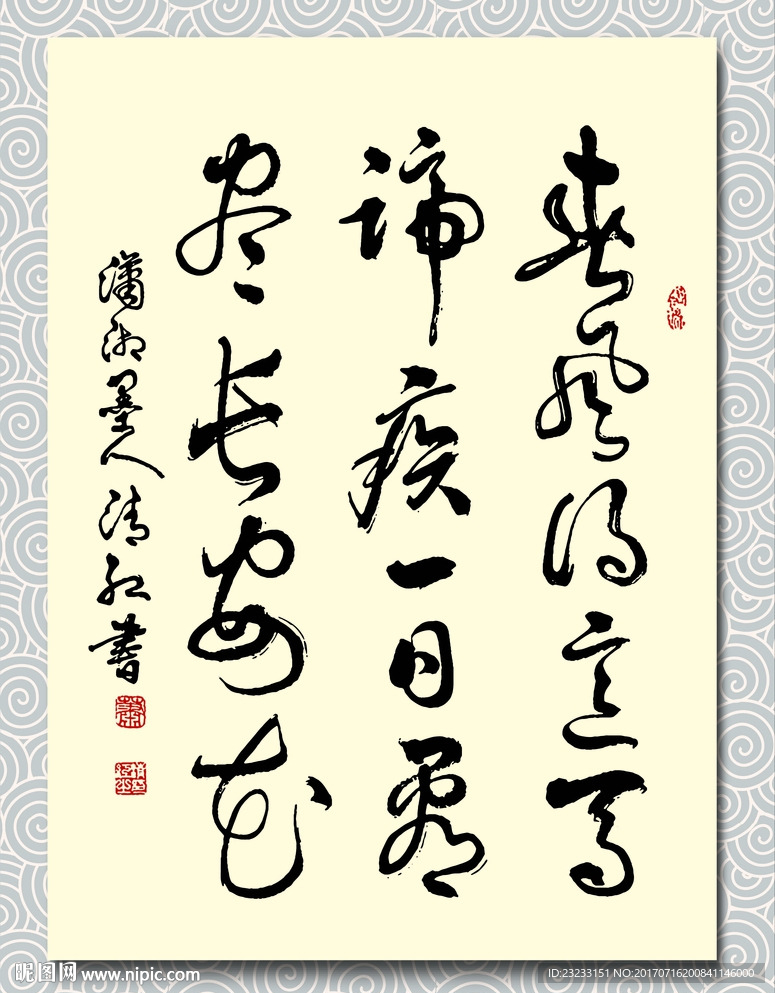 春风得意马
蹄疾一日看
尽长安花
潇湘墨人清 書
昵图网 www.nipic.com
ID:23233151 NO:20170716200841146000